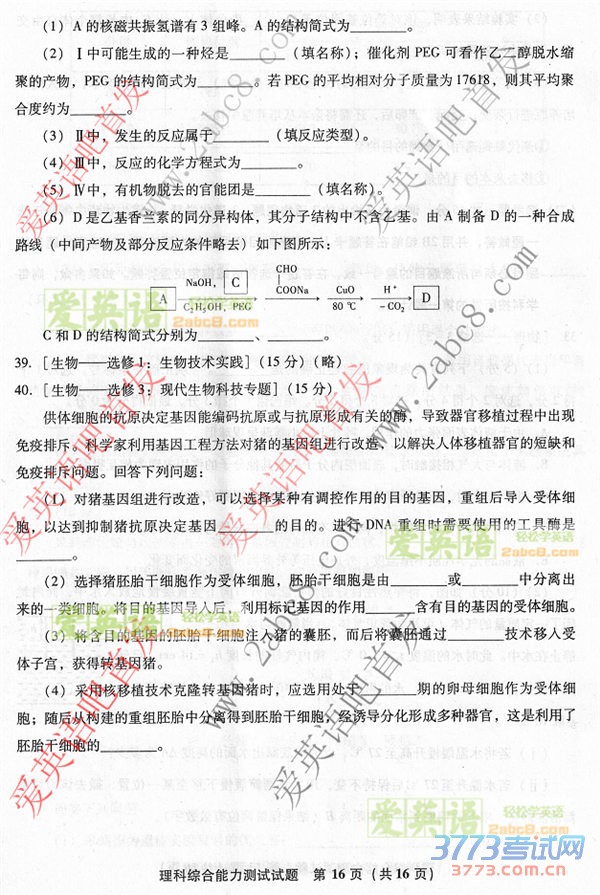 (1) A 的核磁共振氢谱有 3 组峰。A 的结构简式为________。
(2) Ⅰ中可能生成的一种烃是________(填名称);催化剂 PEG 可看作乙二醇脱水缩
聚的产物,PEG 的结构简式为________。若 PEG 的平均相对分子质量为 17618,则其平均聚
合度约为________。
(3) Ⅱ中,发生的反应属于________(填反应类型)。
(4) Ⅲ中,反应的化学方程式为________。
(5) Ⅳ中,有机物脱去的官能团是________(填名称)。
(6) D 是乙基香兰素的同分异构体,其分子结构中不含乙基。由 A 制备 D 的一种合成
路线(中间产物及部分反应条件略去)如下图所示:
A NaOH, C C2H5OH, PEG CHO COONa CuO 80 ℃ H+ -CO2 D
C 和 D 的结构简式分别为________、________。
39. [生物——选修 1:生物技术实践](15 分)(略)
40. [生物——选修 3:现代生物科技专题](15 分)
供体细胞的抗原决定基因能编码抗原或与抗原形成有关的酶,导致器官移植过程中出现
免疫排斥。科学家利用基因工程方法对猪的基因组进行改造,以解决人体移植器官的短缺和
免疫排斥问题。回答下列问题:
(1) 对猪基因组进行改造,可以选择某种有调控作用的目的基因,重组后导入受体细
胞,以达到抑制猪抗原决定基因________的目的。进行 DNA 重组时需要使用的工具酶是
________。
(2) 选择猪胚胎干细胞作为受体细胞,胚胎干细胞是由________或________中分离出
来的一类细胞。将目的基因导入后,利用标记基因的作用________含有目的基因的受体细胞。
(3) 将含目的基因的胚胎干细胞注入猪的囊胚,而后将囊胚通过________技术移入受
体子宫,获得转基因猪。
(4) 采用核移植技术克隆转基因猪时,应选用处于________期的卵母细胞作为受体细
胞;随后从构建的重组胚胎中分离得到胚胎干细胞,经诱导分化形成多种器官,这是利用了
胚胎干细胞的________。
理科综合能力测试试题 第 16 页(共 16 页)
爱英语吧首发
www.2abc8.com
爱英语吧
轻松学英语
2abc8.com
7773考试网
www.7773.com.cn